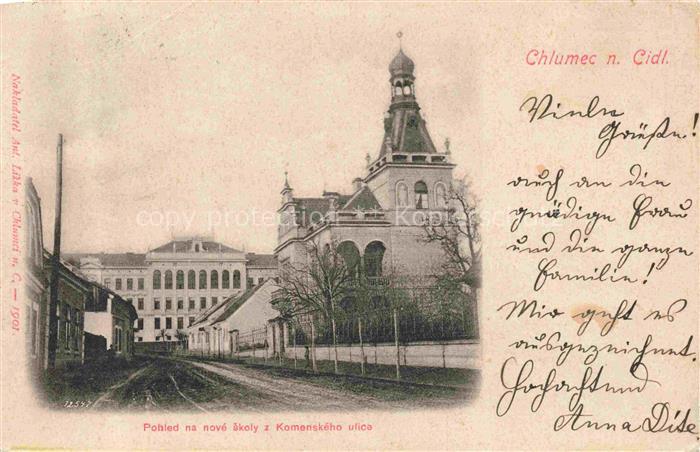 Chlumec n. Cidl.
Nakladatel Ant. Liška v Chlumci n. C. — 1901.
Viele
Grüße!
auch an die
gnädige Frau
und die ganze
Familie!
Mir geht es
ausgezeichnet.
Hochachtend
Anna Dite
copy protection by
Pohled na nové školy z Komenského ulice